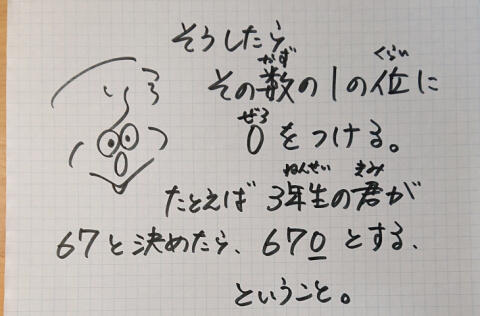 そうしたら
その数の1の位に
かず くらい
0をつける。
ぜろ
たとえば 3年生の君が
ねんせい きみ
67と決めたら、670とする、
ということ。